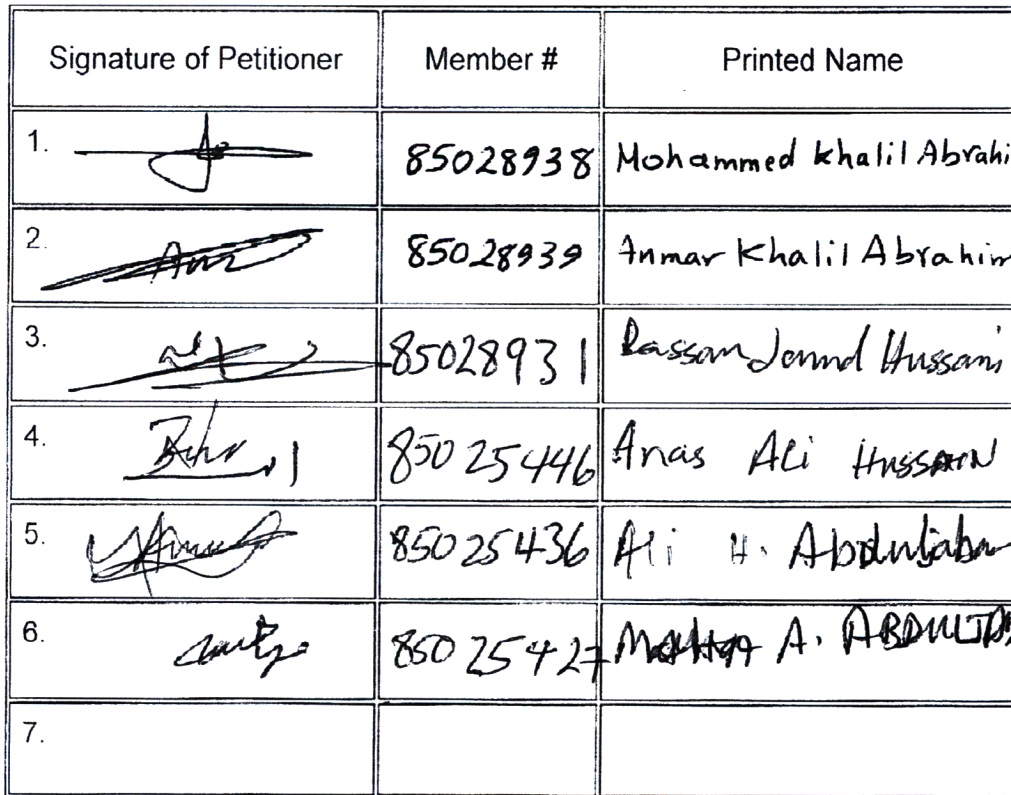 Signature of Petitioner Member # Printed Name
1. 85028938 Mohammed Khalil Abrahi
2. 85028939 Anmar Khalil Abrahim
3. 85028931 Hussani
4. 85025446 Anas Ali HUSSAIN
5. 85025436 Ali H. Abduljaba
6. 85025427 A.
7.